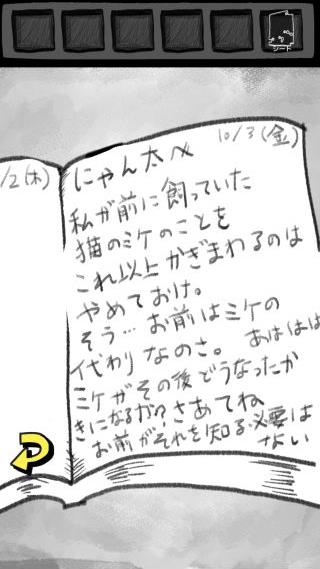 シード
/2(木)
10/3(金)
にゃん太へ
私が前に飼っていた
猫のミケのことを
これ以上かぎまわるのは
やめておけ。
そう…お前はミケの
代わりなのさ。あははは
ミケがその後どうなったか
きになるか?さあてね
お前がそれを知る必要は
ない